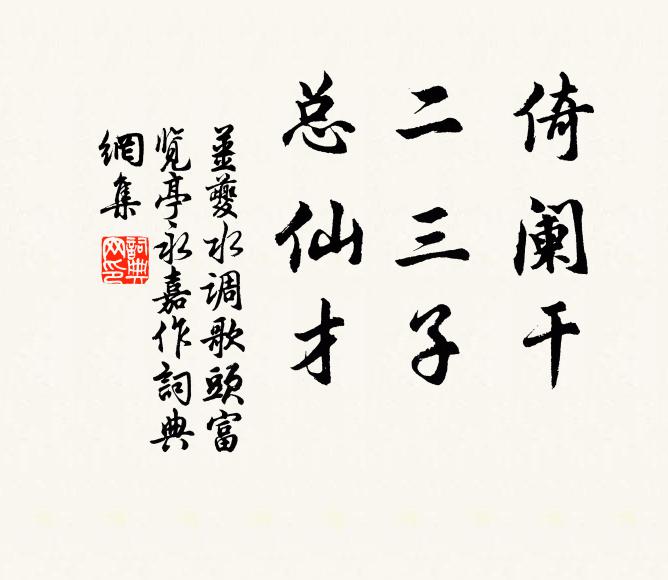 倚阑干
二三子
总仙才
姜夔水调歌头富
览亭永嘉作词典
網集
詞典
网印